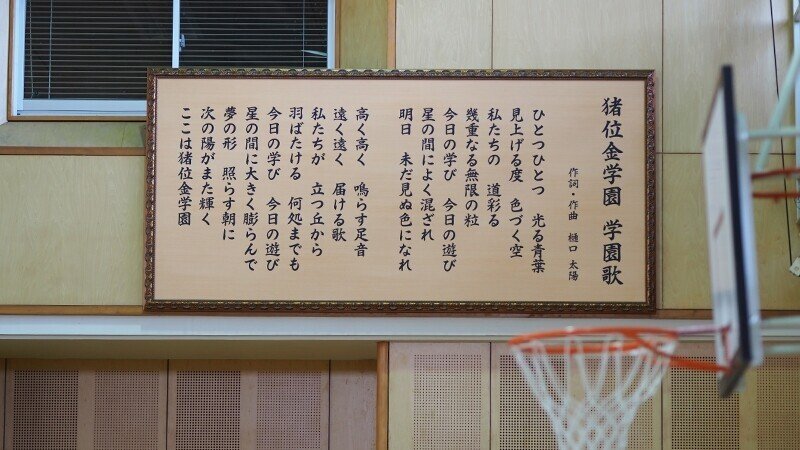 猪位金学園 学園歌
作詞・作曲 樋口 太陽
ひとつひとつ 光る青葉
見上げる度 色づく空
私たちの 道彩る
幾重なる無限の粒
今日の学び 今日の遊び
星の間によく混ざれ
明日 未だ見ぬ色になれ
高く高く 鳴らす足音
遠く遠く 届ける歌
私たちが 立つ丘から
羽ばたける 何処までも
今日の学び 今日の遊び
星の間に大きく膨らんで
夢の形 照らす朝に
次の陽がまた輝く
ここは猪位金学園